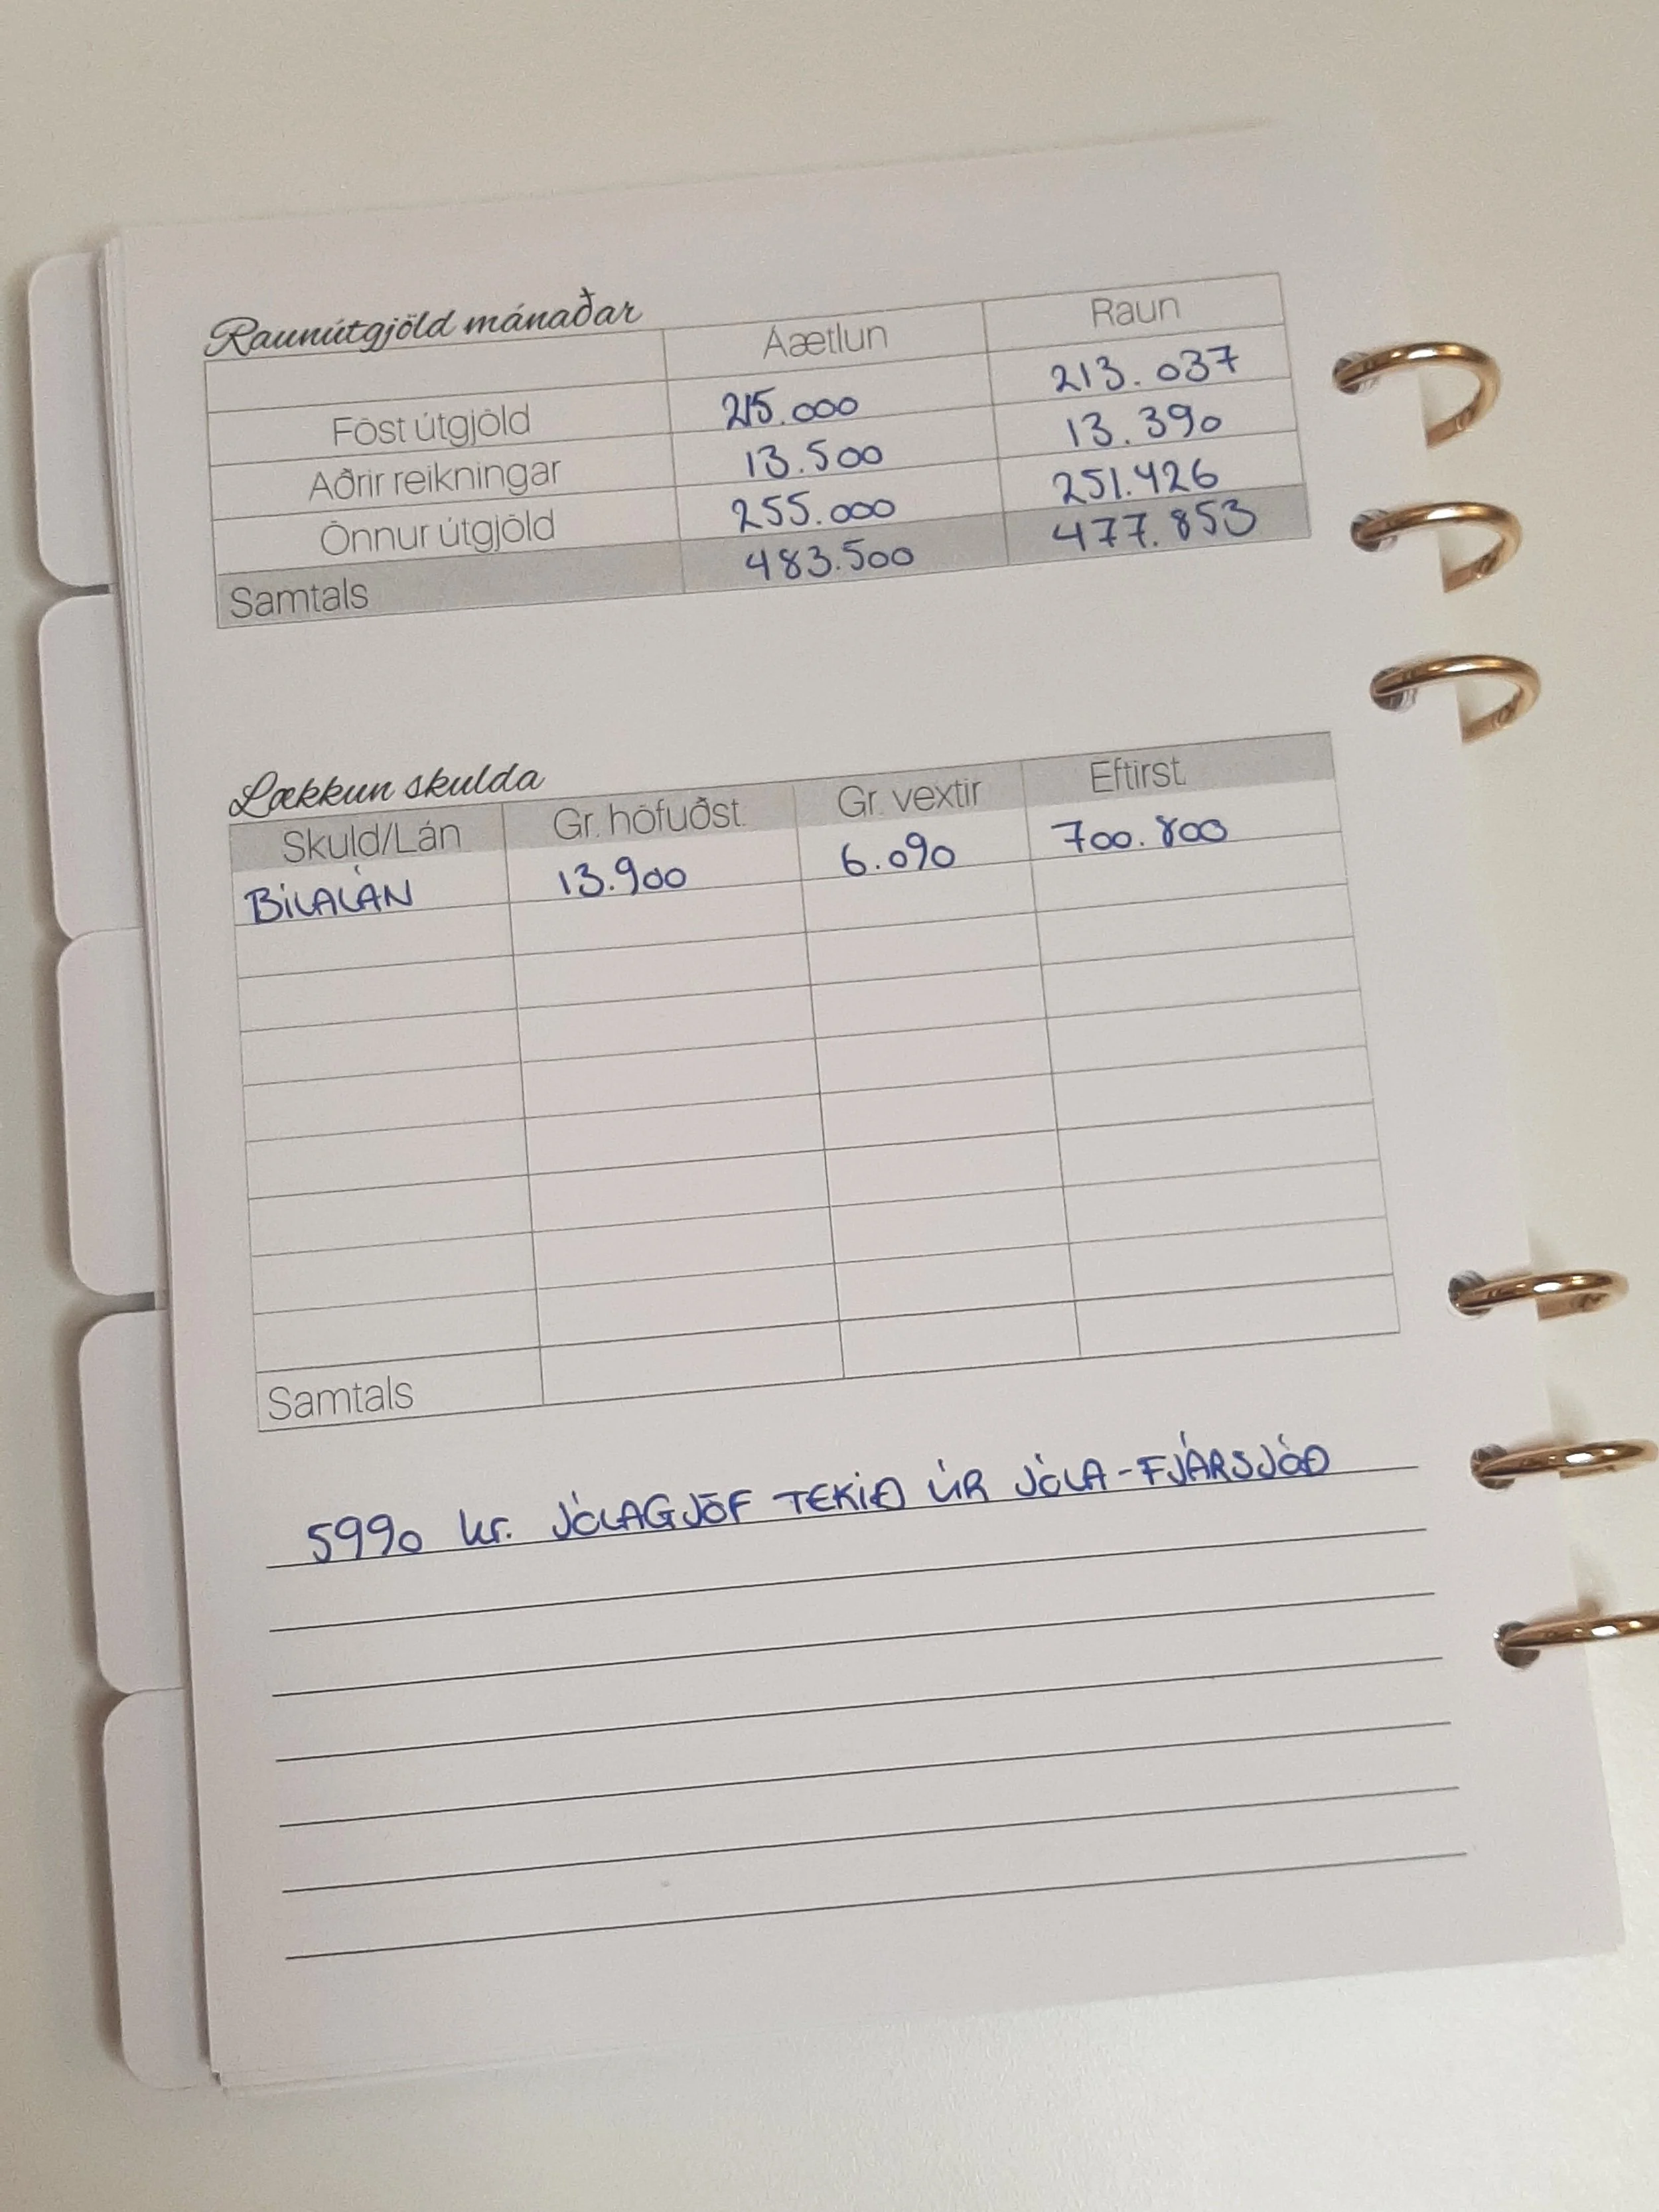 Raunútgjöld mánaðar
Áætlun Raun
Föst útgjöld 215.000 213.037
Aðrir reikningar 13.500 13.390
Önnur útgjöld 255.000 251.426
Samtals 483.500 477.853
Lækkun skulda
Skuld/Lán Gr. höfuðst. Gr. vextir Eftirst.
BÍLALÁN 13.900 6.090 700.800
Samtals
5990 kr. JÓLAGJÖF TEKIÐ ÚR JÓLA-FJÁRSJÓÐ